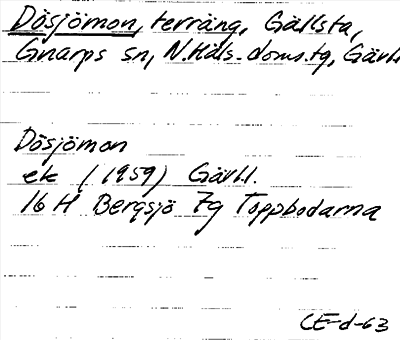 Dösjömon, terräng, Gällsta,
Gnarps sn, N.Häls. doms.tg, Gävl.
Dösjömon
ek (1959) Gävl.
16 H Bergsjö 7g Toppbodarna
CE-d-63